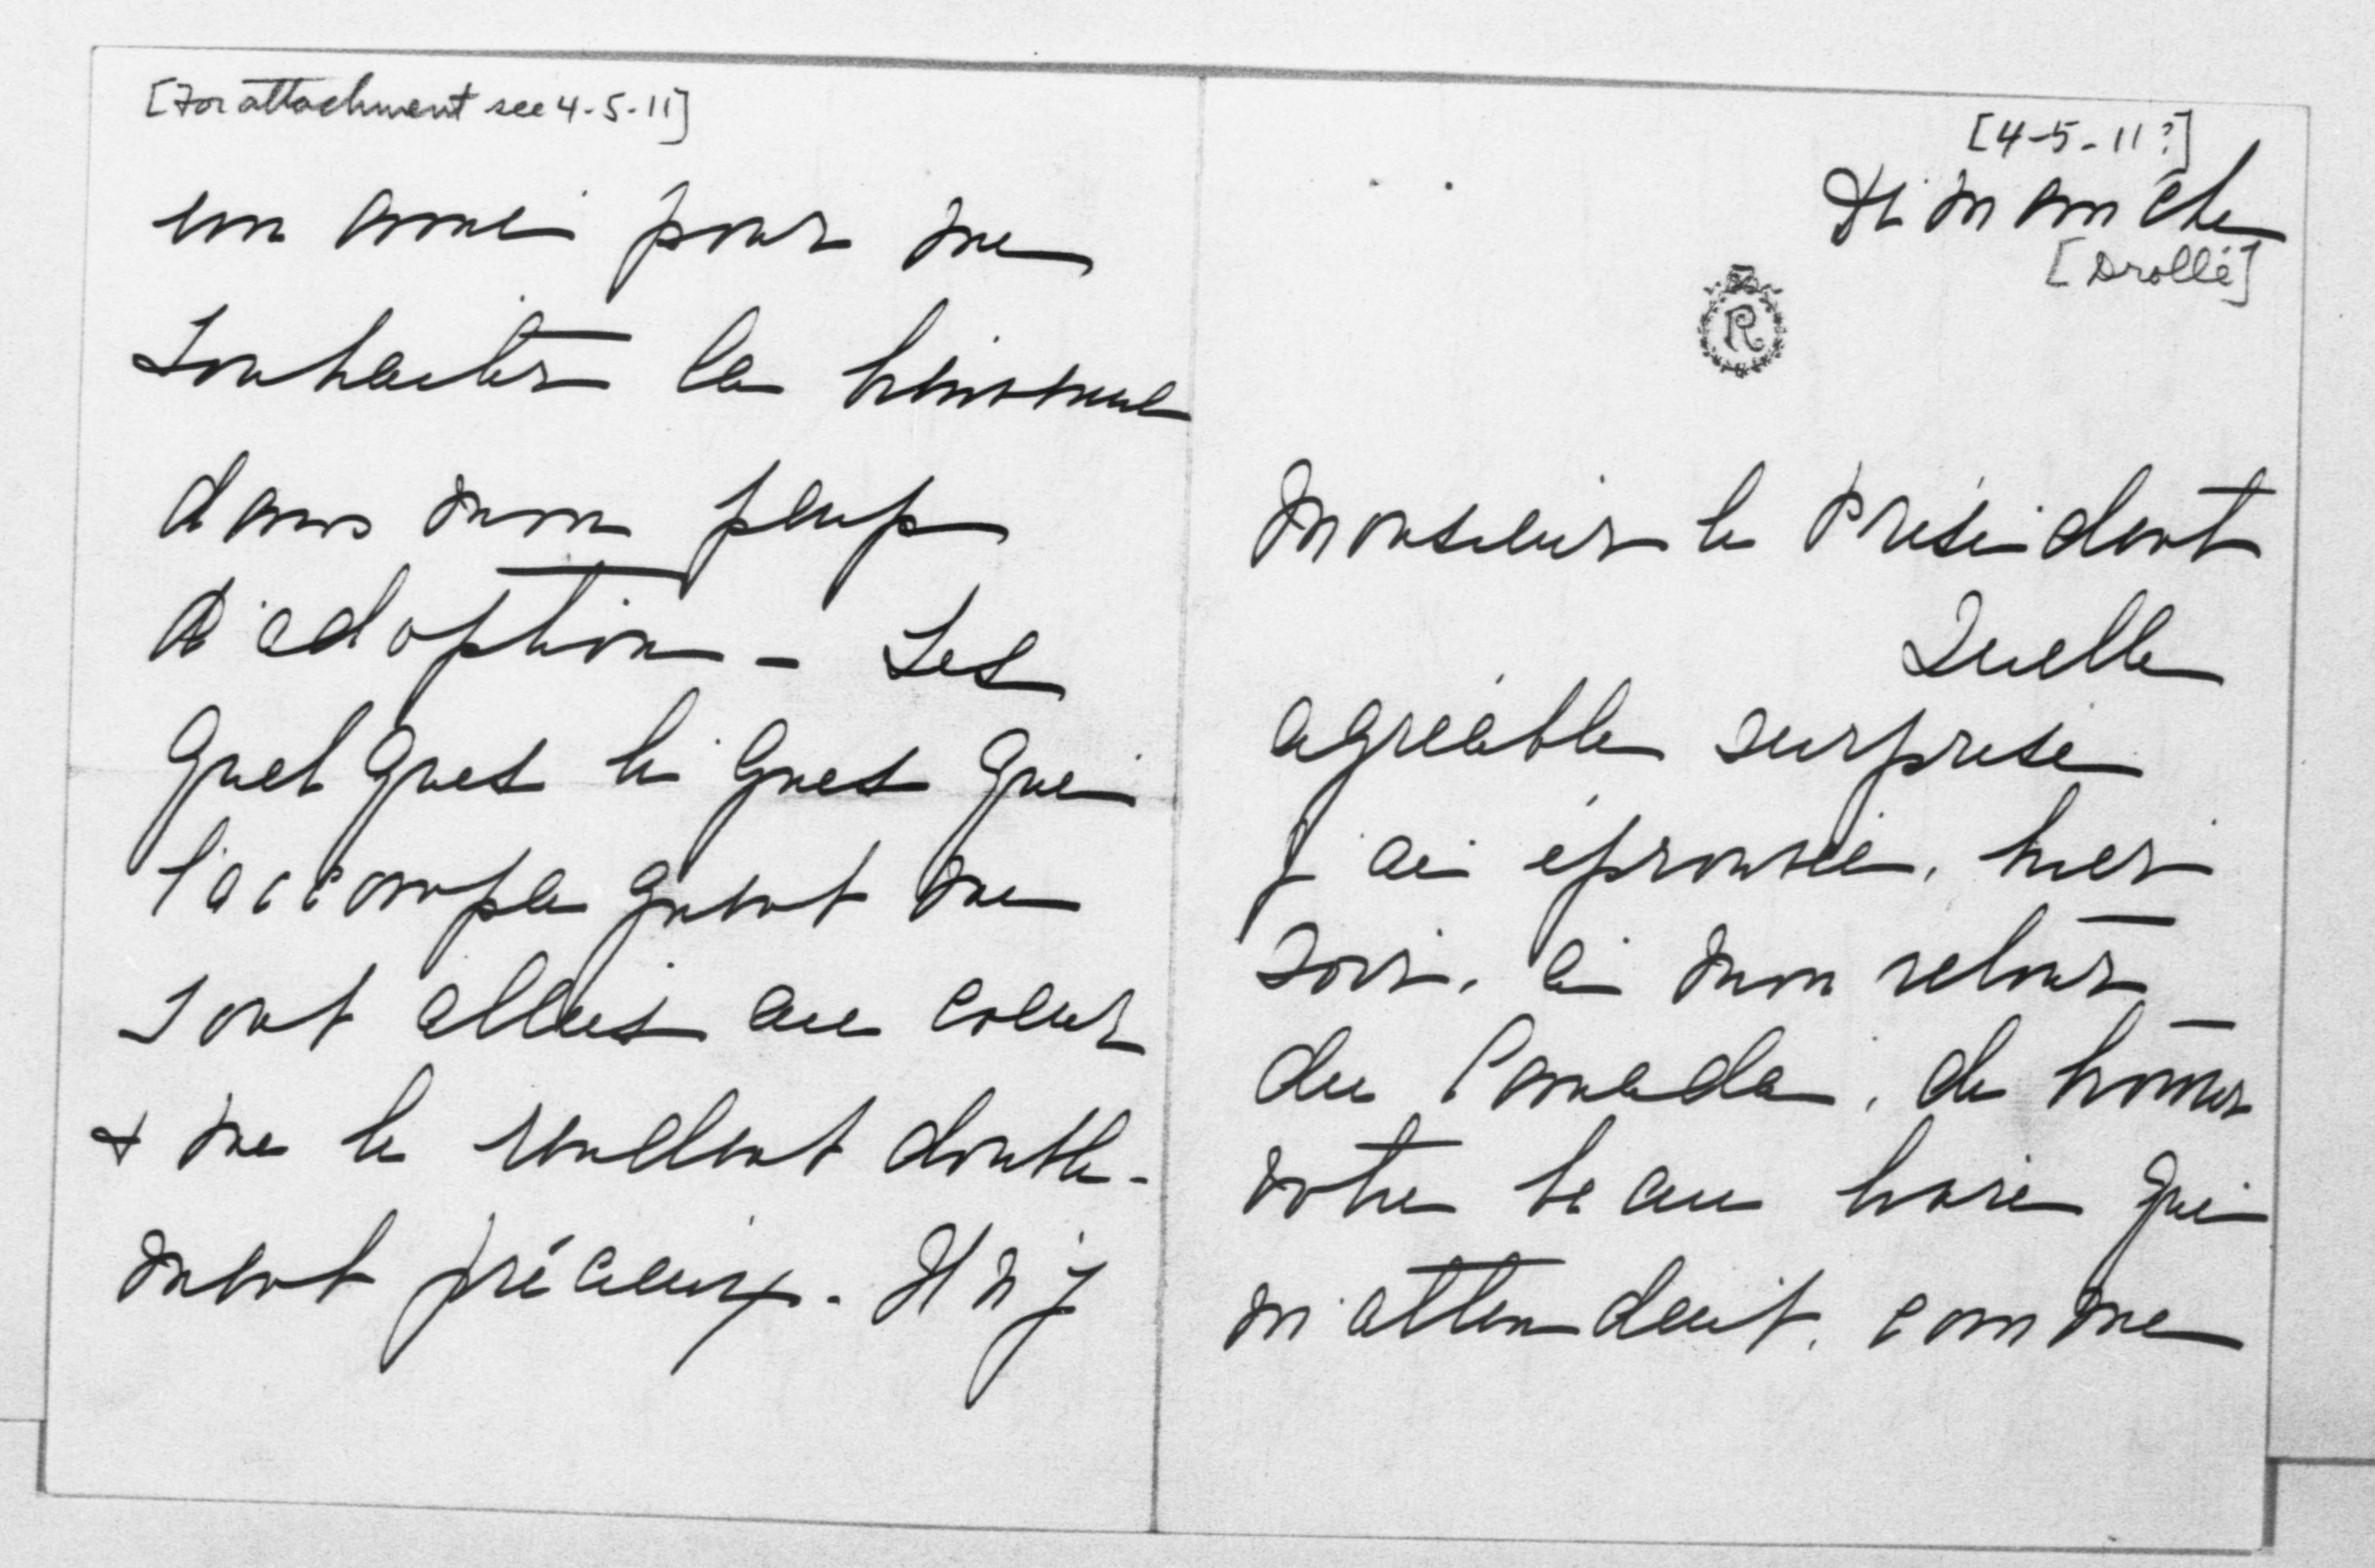 [4-5-11?]
Dimanche
[Drollé]
R
Monsieur le Président
Quelle
agréable surprise
j'ai éprouvée, hier
soir, à mon retour
du Canada, de trouver
votre beau livre qui
m'attendait, comme
[For attachment see 4-5-11]
un ami pour me
souhaiter la bienvenue
dans mon pays
d'adoption - Les
quelques lignes qui
l'accompagnent me
sont allées au coeur
& me le rendent double-
ment précieux. Il n'y